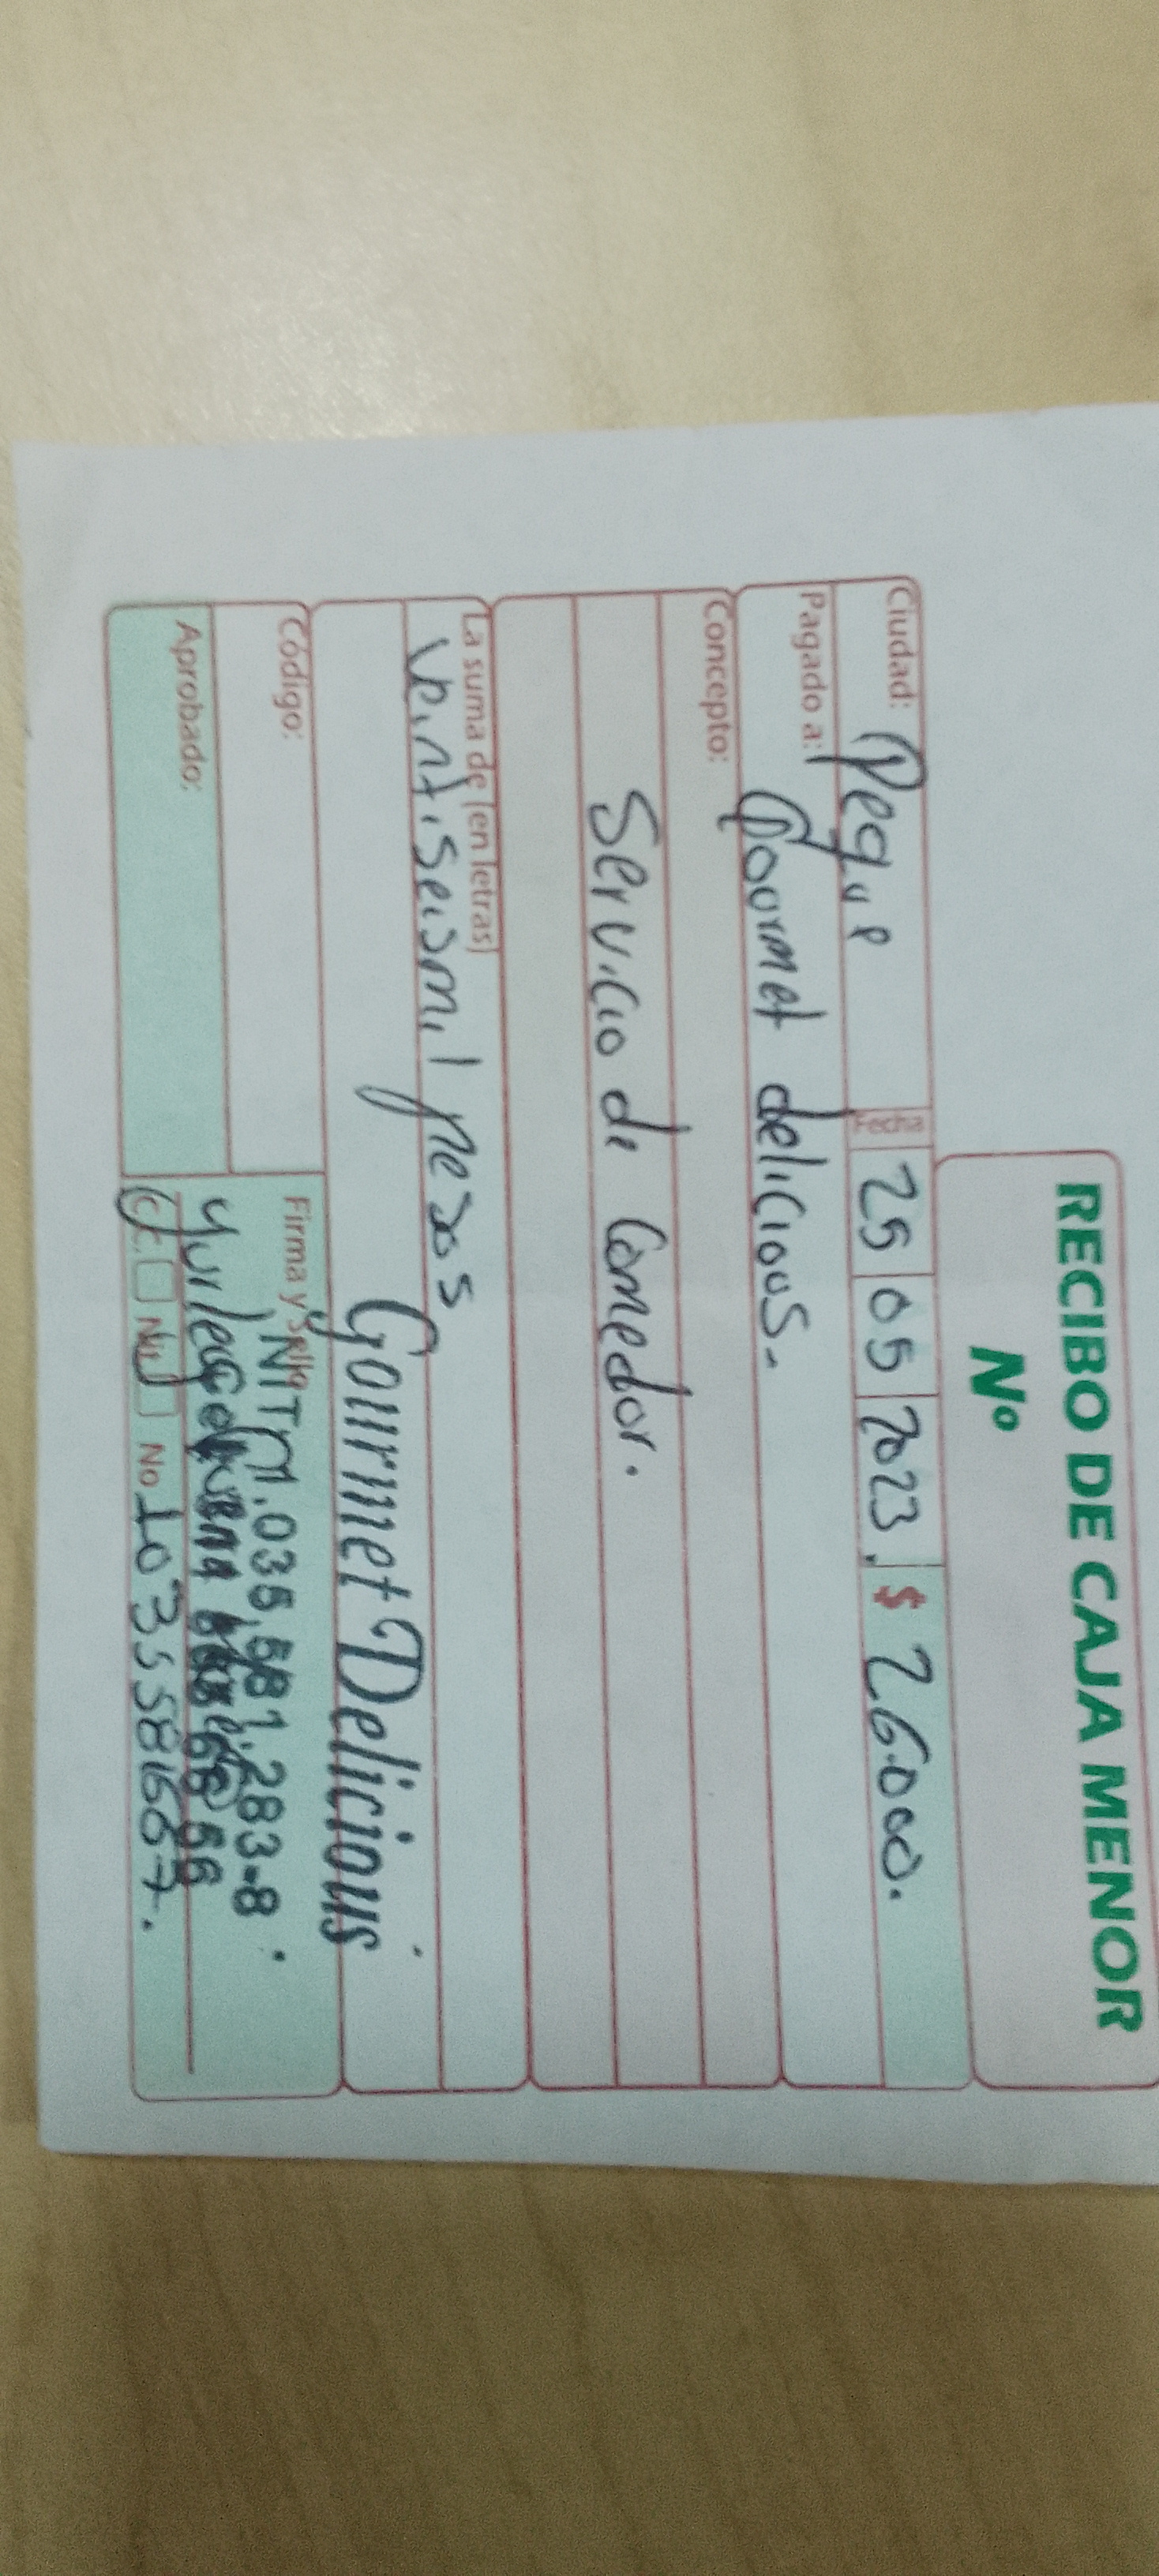 RECIBO DE CAJA MENOR
Nº
Ciudad: Peque Fecha 25 05 2023. $ 26000.
Pagado a: Gourmet delicious-
Concepto:
Servicio di Comedor.
La suma de (en letras)
Veintiseismil pesos
Gourmet Delicious
Código: Firma y Sello
NIT 1.035.581.283-8
Aprobado:
C.C. Nit No 1035581667.